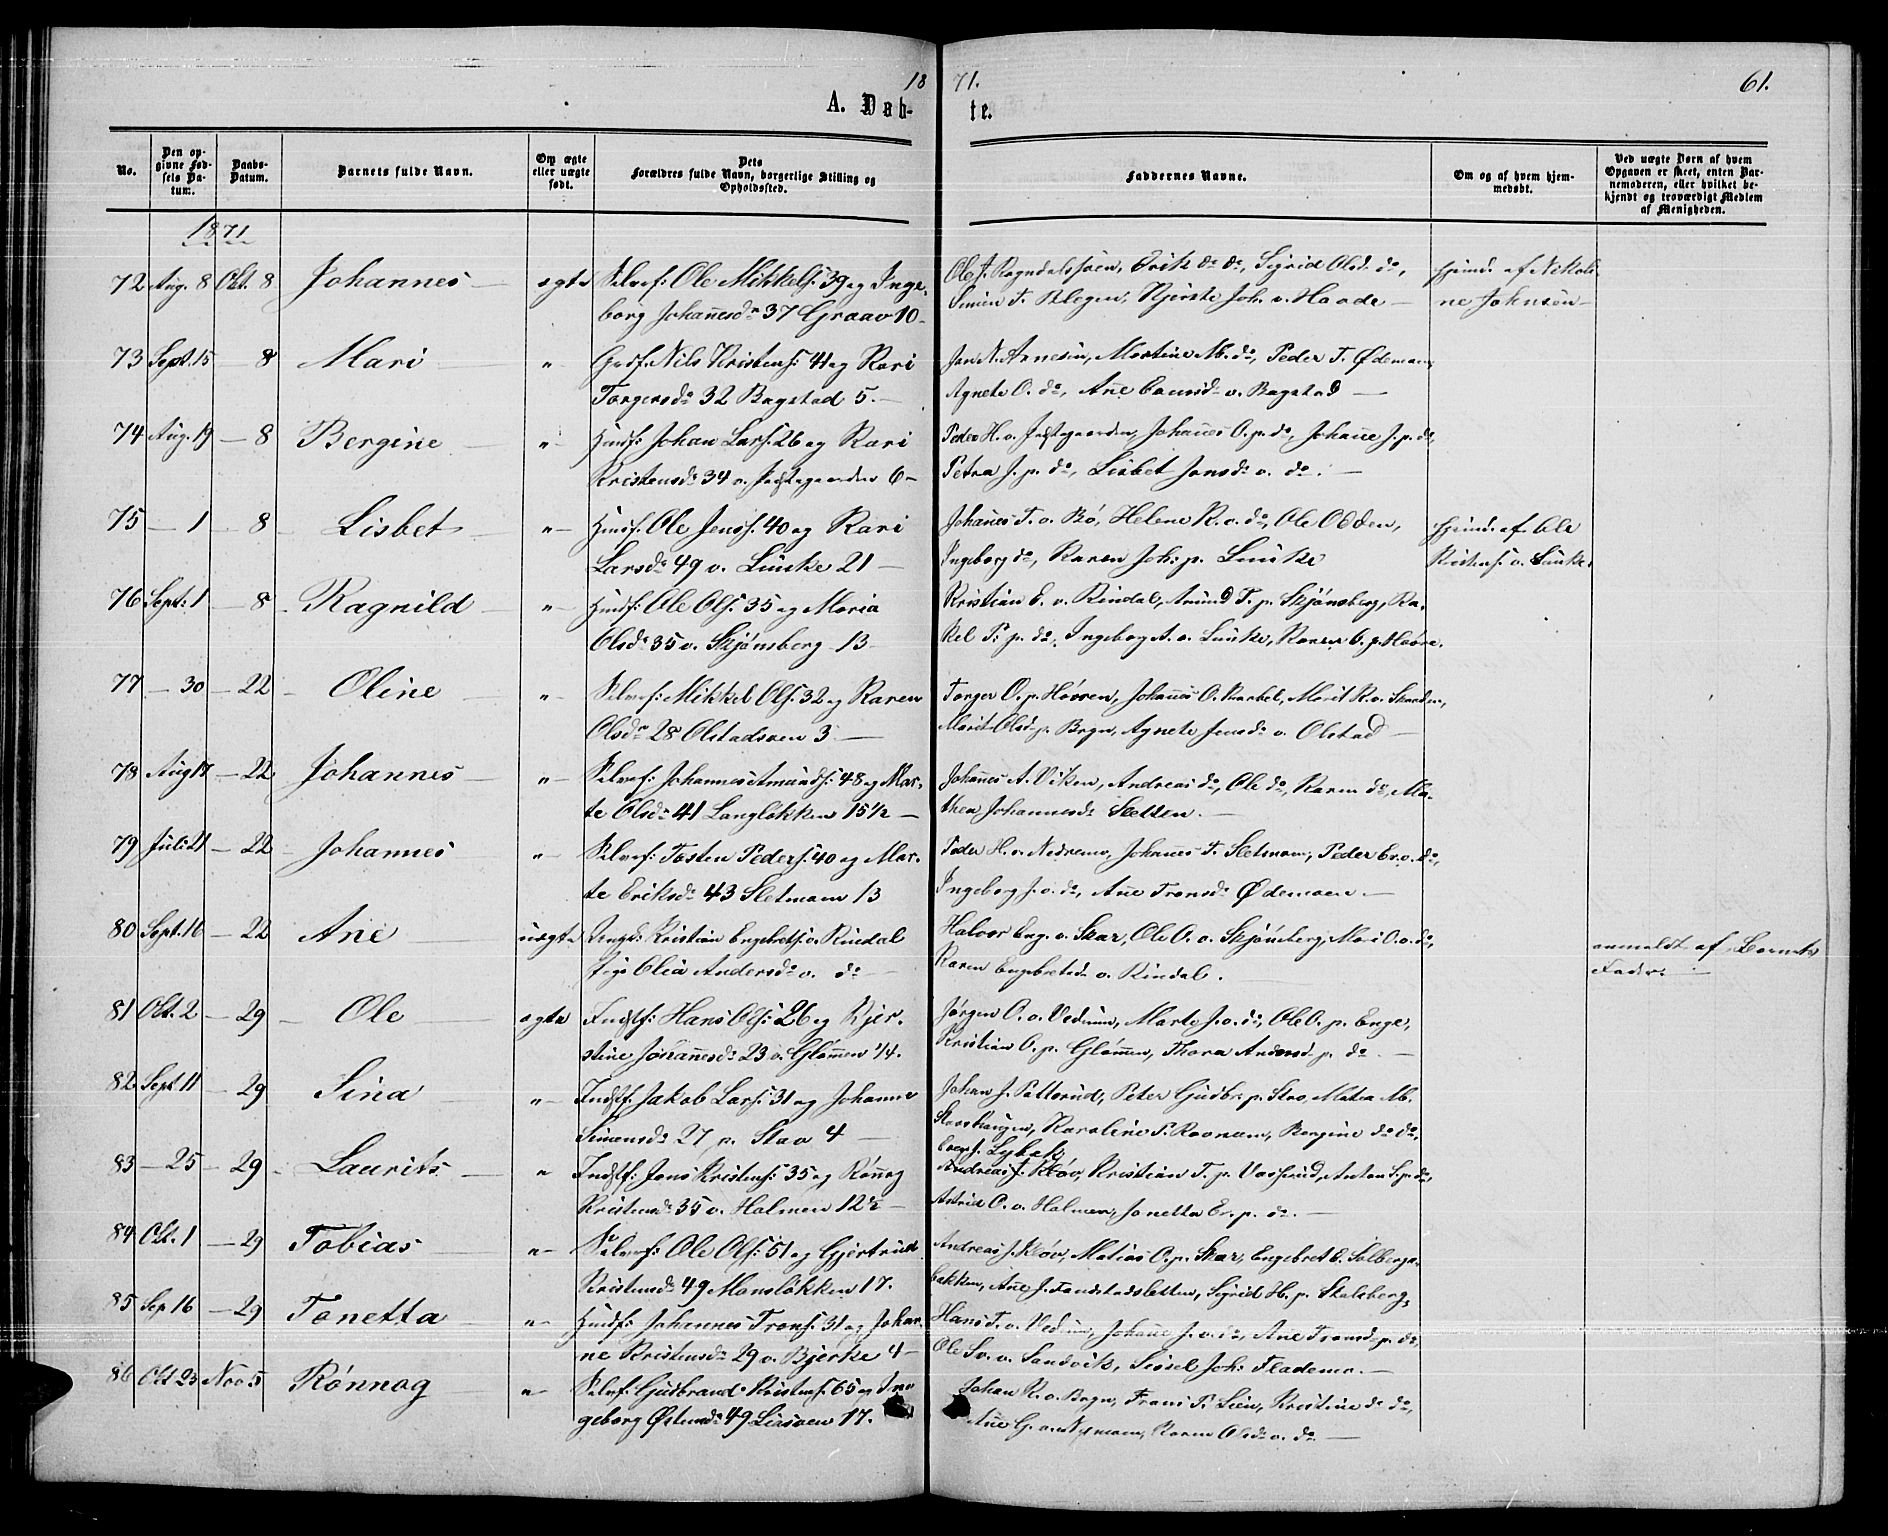 1871.
61.
A. Døb-te.
No.
Den opgivne Fødsels Datum.
Daabs-Datum.
Barnets fulde Navn.
Om ægte eller uægte født.
Dets Forældres fulde Navn, borgerlige Stilling og Opholdssted.
Faddernes Navne.
Om og af hvem hjemmedøbt.
Ved uægte Børn af hvem Opgaven er skeet, enten Barnemoderen, eller hvilket bekjendt og troværdigt Medlem af Menigheden.
1871
72 Aug. 8 Okt. 8 Johannes ægte Selvef: Ole Mikkels: 39 og Inge-
borg Johannesdr 37 Graav 10
Ole J. Rogndalssven, Erik do do, Sigrid Olsd. do,
Simen T. Blegen, Kjerste Joh. v. Haade
hjemd. af Nikoli-
ne Johnsen
73 Sept. 15 8 Mari " Gadf. Nils Kristens: 41 og Kari
Torgersdr 32 Bagstad 5.
Jon N. Arnesen, Martine M. do, Peder T. Ødemoen,
Agnete O. do, Ane v. Bagstad
74 Aug. 19 8 Bergine " Husf: Johan Lars: 26 og Kari
Kristensdr 34 v. 6
Peder H. v. Johanes O. p. do, Johane J. p. do,
Petra J. p. do, Lisbet Jonsdr v. do.
75 1 8 Lisbet " Husf: Ole Jens: 40 og Kari
Larsdr 49 v. Lunke 21
Johanes T. v. Bø, Helene K. v. do, Ole Odden,
Ingeborg do, Karen Joh: p. Lunke
hjemd. af Ole
Kristens: v. Lunke.
76 Sept: 1 8 Ragnild " Husf: Ole Ols: 35 og Maria
Olsdr 35 v. Skjønsberg 13
Kristian E. v. Rindal, Amund T. p. Skjønsberg, Ra-
kel P: p. do, Ingebog A. v. Lunke, Karen O. p. Haave.
77 30 22 Oline " Selvef: Mikkel Ols: 32 og Karen
Olsdr 28 Olstadsven 3
Torger O. p. Høvren, Johanes O. Marit K. v.
Marit Olsdr p. Bryn, Agnete Jensdr v. Olstad
78 Aug 17 22 Johannes " Selvef: Johannes Amunds: 48 og Mar-
te Olsdr 41 Langløkken 15½
Johanes A. Viken, Andreas do, Ole do, Karen do, Ma-
thea Johannesdr Sletten.
79 Juli 21 22 Johannes " Selvef: Tosten Peders: 40 og Mar-
te Eriksdr 43 Sletmoen 13
Peder H. v. Nedremo, Johanes T. Sletmoen, Peder Er. v. do,
Ingeborg J. v. do, Ane Tronsdr Ødemoen
80 Sept. 16 22 Ane uægte Ungk: Kristian Engebrets: v. Rindal
Pige Olia Andersdr v. do
Halvor Eng. v. Skar, Ole A. v. Skjønsberg, Mari O. v. do,
Karen Engebretsdr v. Rindal.
anmeldt af Barnets
Fader.
81 Okt. 2 29 Ole ægte Indstf: Hans Ols: 26 og Kjer-
stine Johannesdr 23 v. Glømen 14.
Jørgen O. v. Vedum, Marte J. v. do, Ole O. p. Enge,
Kristian O. p. Glømen, Thora Andersd. p. do
82 Sept 11 29 Sina " Indstf. Jakob Lars: 31 og Johanne
Simensdr 27 p. Stav 4
Johan J. Patterud, Peter Gudbr. p. Stav, Matea M.
Stavshaugen, Karoline P. Roonæm, Bergine do do,
83 25 29 Laurits " Indstf: Jens Kristens: 35 og Rønnog
Kristensdr 35 v. Holmen 12½
Andreas J. Kløv, Kristian T. p. Vasrud, Anton S. p. do,
Astrid O. v. Holmen, Jonetta Er. p. do.
84 Okt. 1 29 Tobias " Selvef: Ole Ols: 51 og Gjertrud
Kristensdr 49 Monsløkken 17.
Andreas J. Kløv, Matias O. p. Skar, Engebret E. Solbergs-
bakken, Ane J. Fonstadsletten, Sigrid H. p. Skalsberg,
85 Sep 16 29 Tonetta " Husf: Johannes Trons: 31 og Johan-
ne Kristensdr 29 v. Bjerke 4
Hans T. v. Vedum, Johane J. v. do, Ane Tronsdr p. do,
Ole Sv. v. Sandvik, Sissel Joh: Flademo.
86 Okt 23 Nov 5 Rønnog " Selvef: Gudbrand Kristens: 65 og In-
geborg Østensdr 49 Liesven 17.
Johan K. v. Bryn, Frans P. Lien, Kristine do do,
Ane G. v. Nymoen, Karen Olsdr v. do.